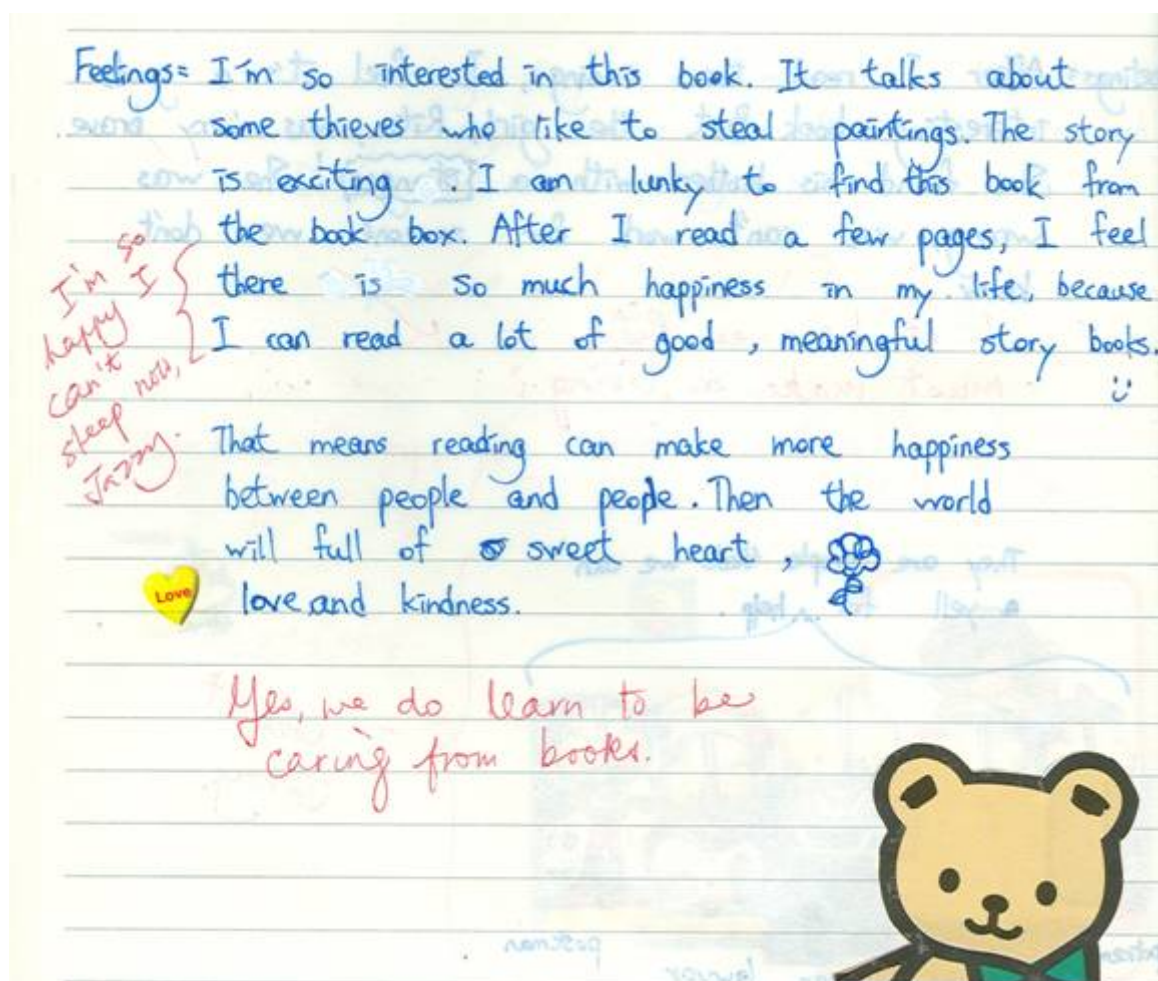 Feelings= I'm so interested in this book. It talks about
some thieves who like to steal paintings. The story
is exciting . I am lunky to find this book from
the book box. After I read a few pages, I feel
there is so much happiness in my life, because
I can read a lot of good , meaningful story books.
I'm so
happy I
can't
sleep now,
Jazzy.
That means reading can make more happiness
between people and people. Then the world
will full of sweet heart ,
Love
love and kindness.
Yes, we do learn to be
caring from books.